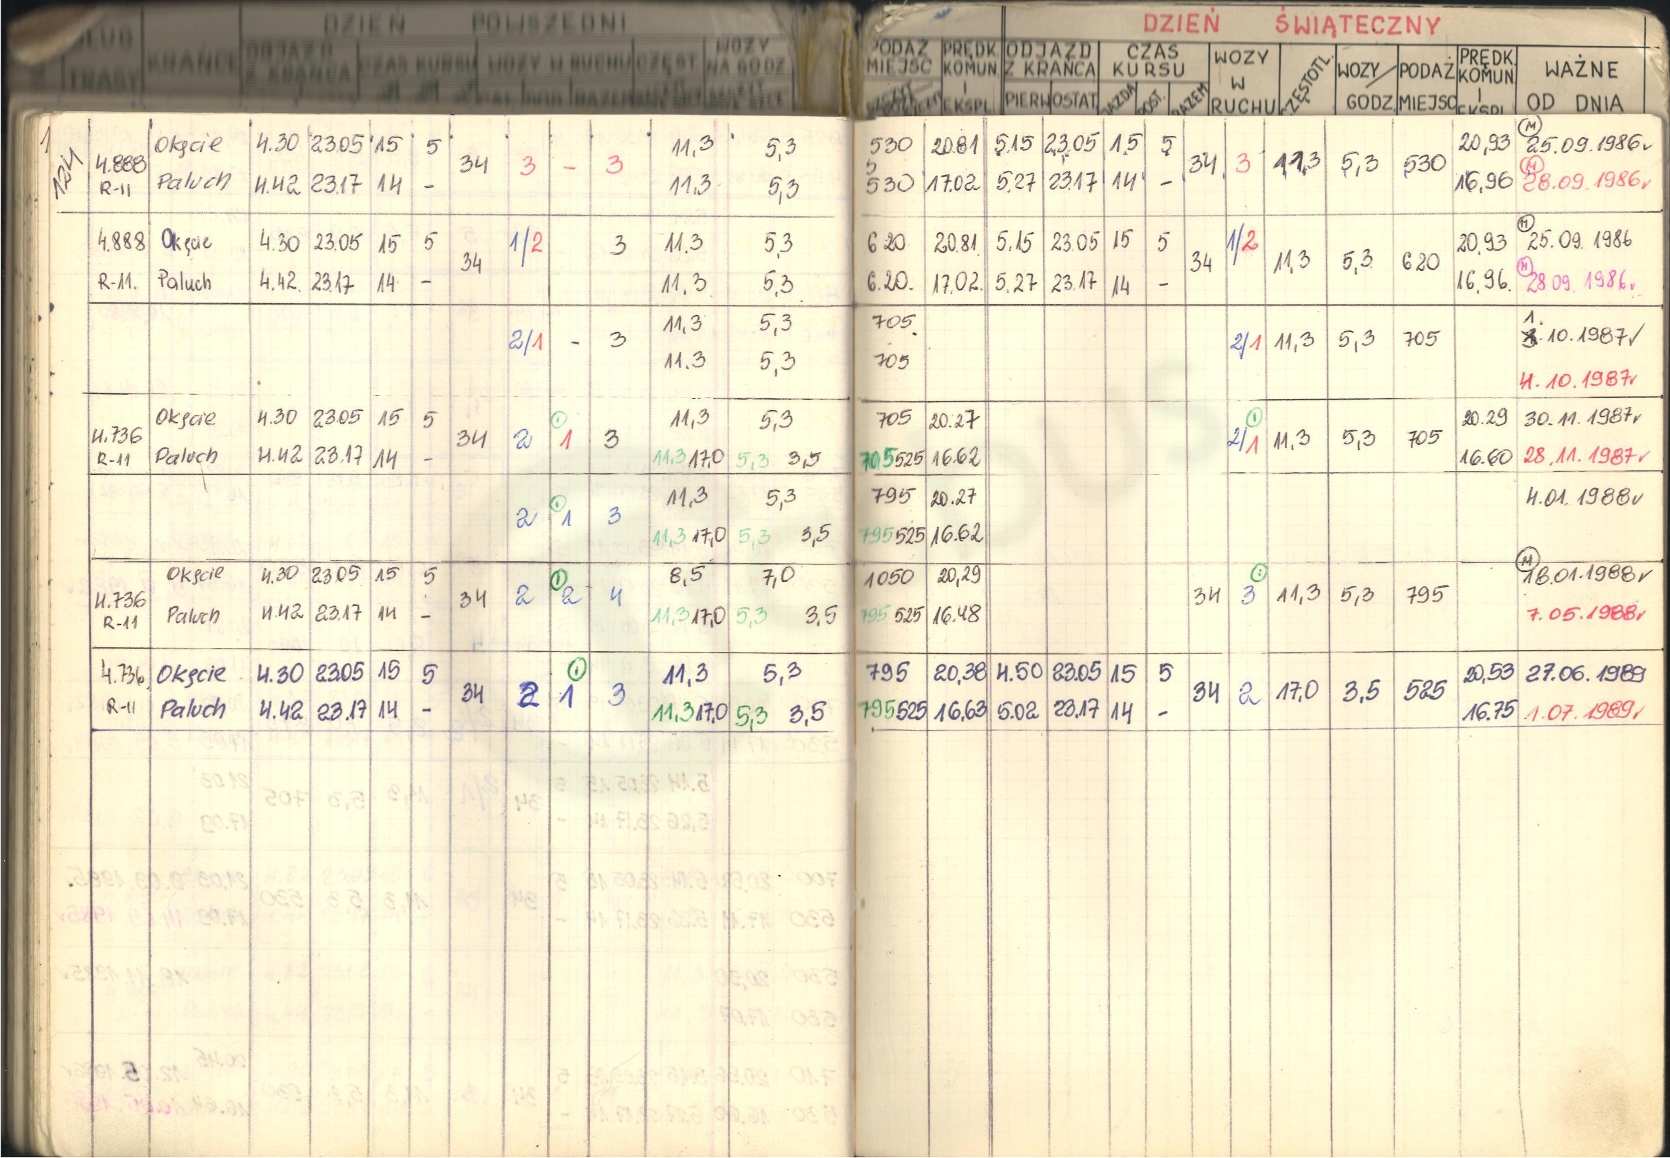 DZIEŃ POWSZEDNI DZIEŃ ŚWIĄTECZNY
DŁUG. TRASY KRAŃCE ODJAZD Z KRAŃCA CZAS KURSU WOZY W RUCHU CZĘST WOZY NA GODZ. PODAŻ MIEJSC PRĘDK. KOMUN I EKSPL. ODJAZD Z KRAŃCA PIERW OSTAT. CZAS KURSU JAZDA POST. RAZEM WOZY W RUCHU CZĘSTOTL. WOZY/GODZ. PODAŻ MIEJSC PRĘDK. KOMUN. I EKSPL. WAŻNE OD DNIA
1
124
4.888 Okęcie 4.30 23.05 15 5 34 3 - 3 11,3 5,3 530 20.81 5.15 23.05 15 5 34 3 11,3 5,3 530 20,93 M 25.09.1986
R-11 Paluch 4.42 23.17 14 - 11,3 5,3 530 17.02 5.27 23.17 14 - 16,96 M 28.09.1986
4.888 Okęcie 4.30 23.05 15 5 34 1/2 3 11.3 5,3 620 20.81 5.15 23.05 15 5 34 1/2 11,3 5,3 620 20,93 M 25.09.1986
R-11. Paluch 4.42 23.17 14 - 11,3 5,3 6.20. 17.02. 5.27 23.17 14 - 16,96. M 28 09. 1986.
2/1 - 3 11,3 5,3 705. 2/1 11,3 5,3 705 1. 10.1987
11.3 5,3 705 4.10.1987
4.736 Okęcie 4.30 23.05 15 5 34 2 1 3 11,3 5,3 705 20.27 2/1 11,3 5,3 705 20.29 30.11.1987
R-11 Paluch 4.42 23.17 14 - 11,3 17,0 5,3 3,5 705 525 16.62 16.60 28.11.1987
2 1 3 11,3 5,3 795 20.27 4.01.1988
11,3 17,0 5,3 3,5 795 525 16.62
4.736 Okęcie 4.30 23.05 15 5 34 2 2 4 8,5 7,0 1050 20,29 34 3 11,3 5,3 795 M 18.01.1988
R-11 Paluch 4.42 23.17 14 - 11,3 17,0 5,3 3,5 795 525 16.48 7.05.1988
4.736 Okęcie 4.30 23.05 15 5 34 2 1 3 11,3 5,3 795 20,38 4.50 23.05 15 5 34 2 17,0 3,5 525 20,53 27.06.1989
R-11 Paluch 4.42 23.17 14 - 11,3 17,0 5,3 3,5 795 525 16,63 5.02 23.17 14 - 16.75 1.07.1989